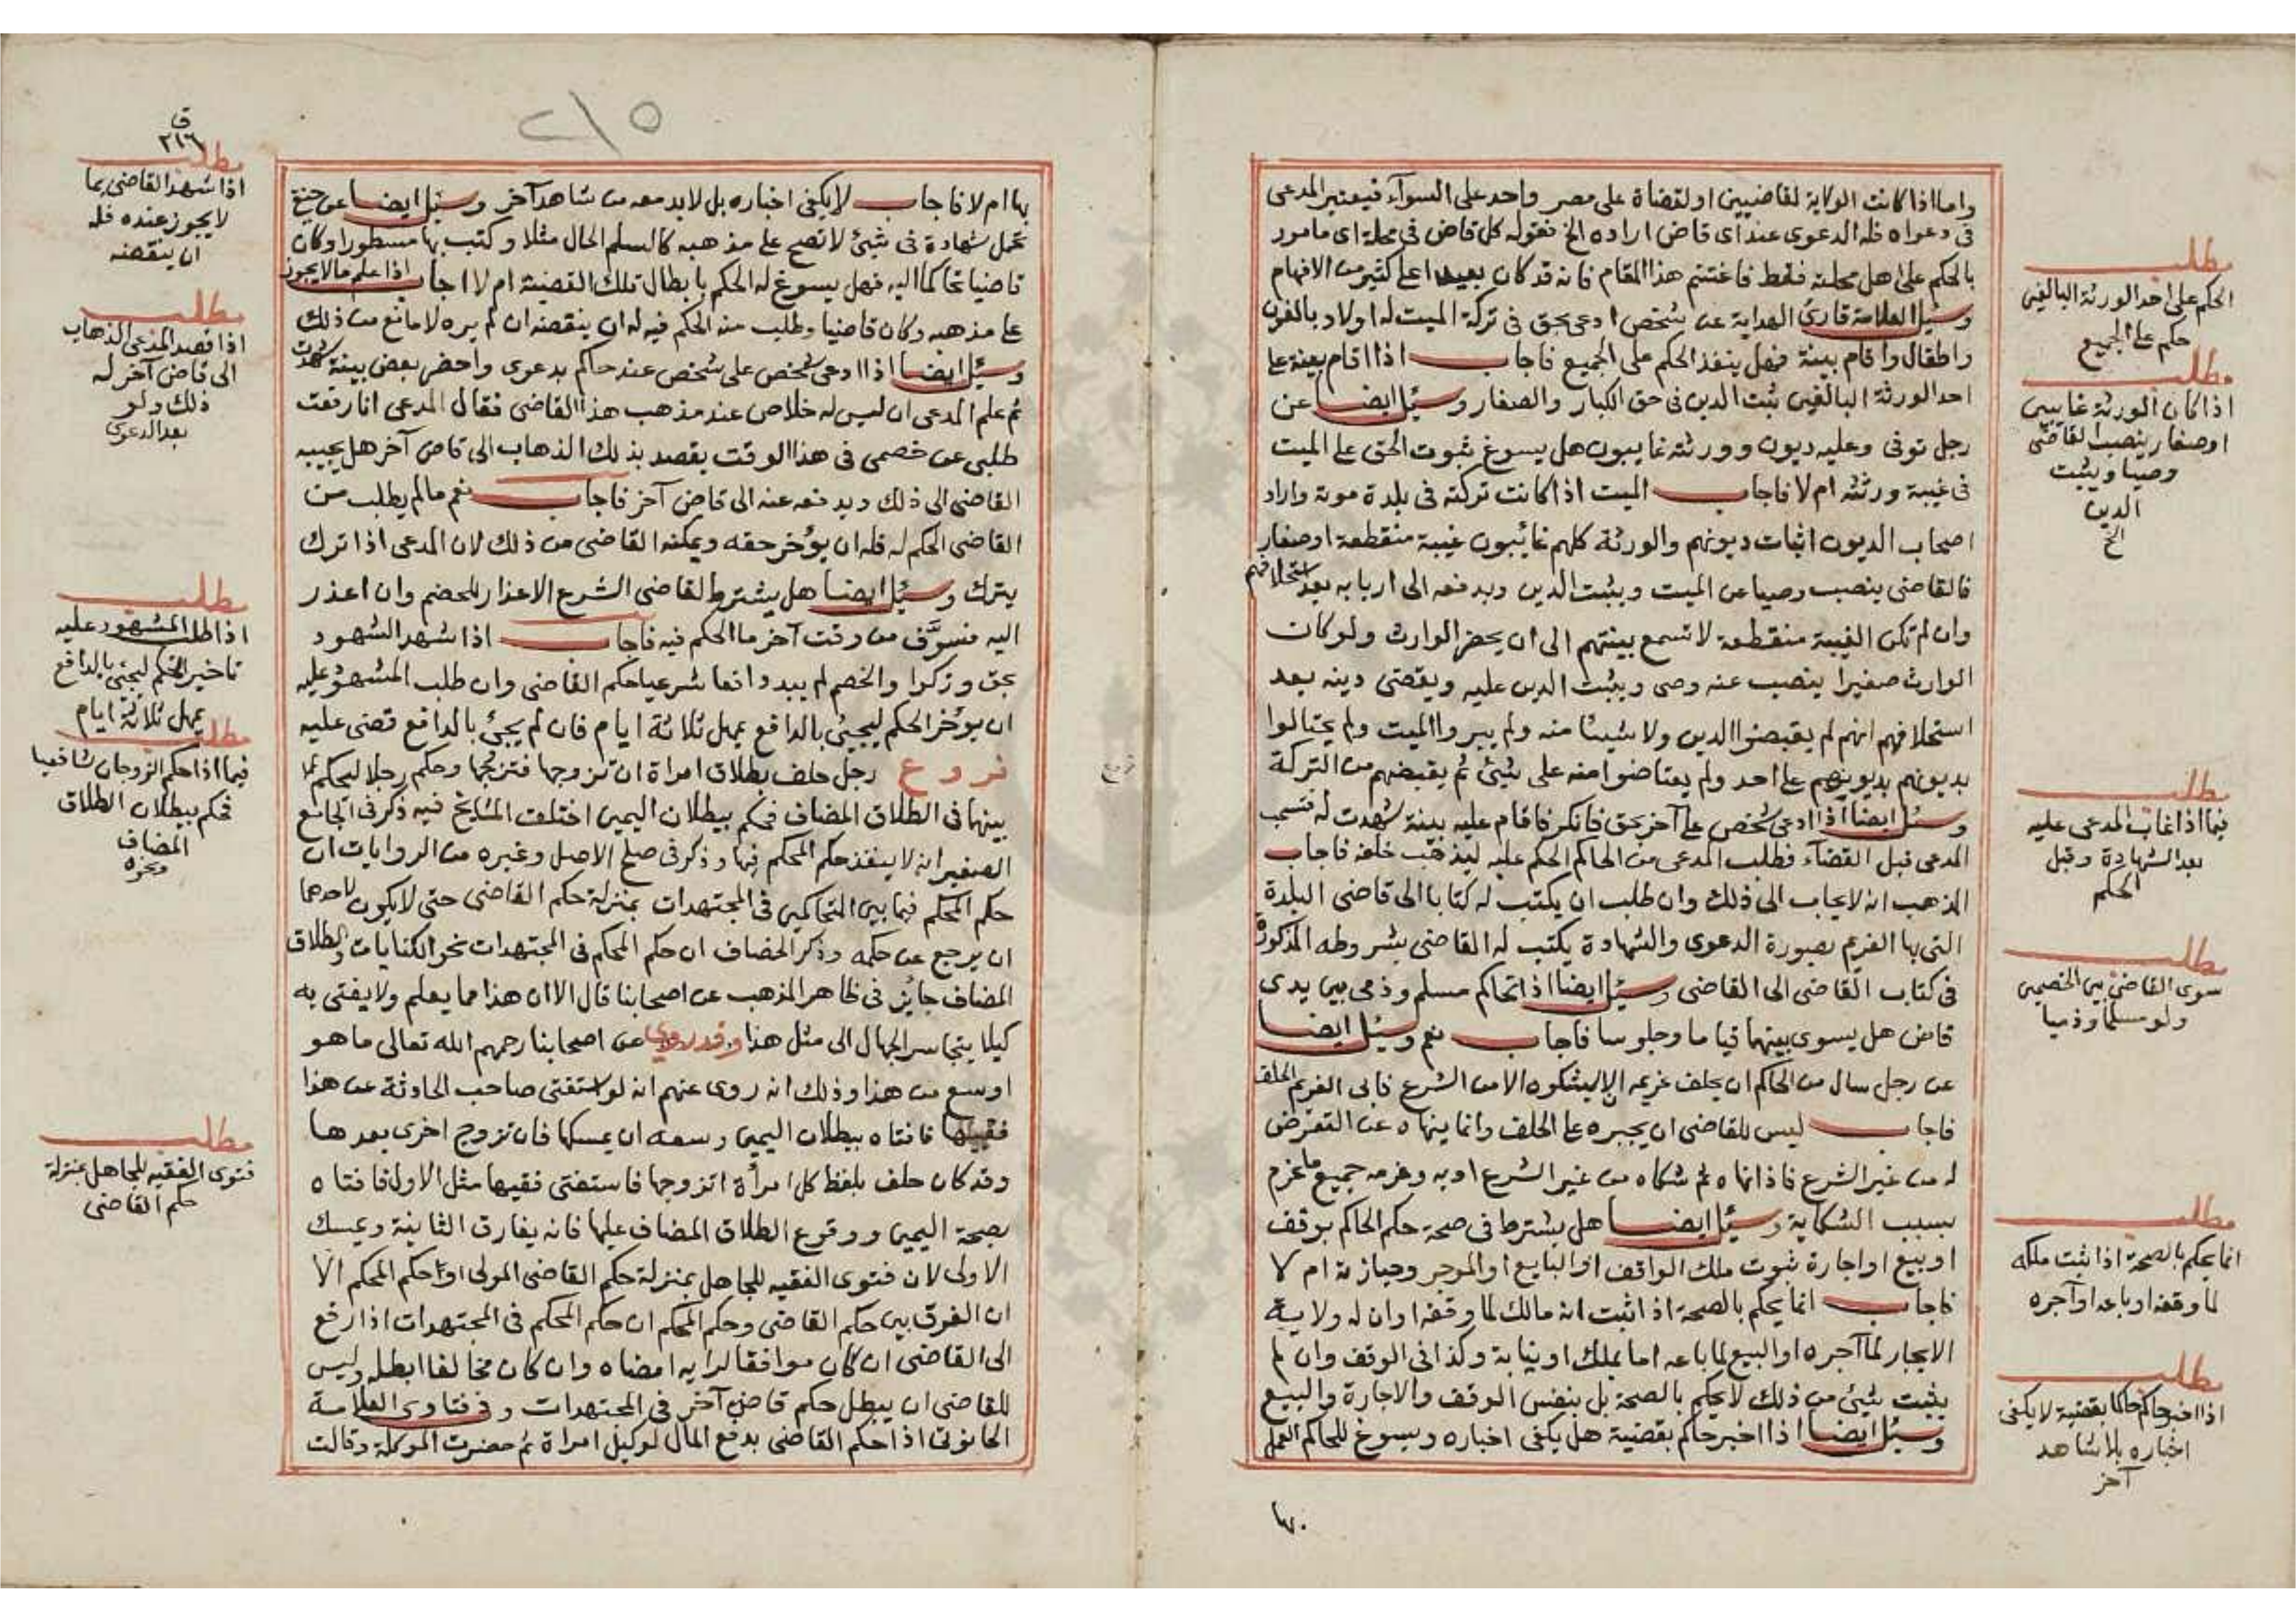 واما اذا كانت الولاية لقاضيين او لقضاة على مصر واحد على السوآء فيعتبر المدعى
فى دعواه فله الدعوى عند اى قاض اراده الخ فقوله كل قاض فى محلة اى مامور
بالحكم على اهل محلته فقط فاغتنم هذا المقام فانه قد كان بعيدا على كثير من الافهام
وسئل العلامة قارئ الهداية عن شخص ادعى بحق فى تركة الميت له اولاد بالغون
واطفال واقام بينة فهل ينفذ الحكم على الجميع فاجاب اذا اقام بينة على
احد الورثة البالغين ثبت الدين فى حق الكبار والصغار وسئل ايضا عن
رجل توفى وعليه ديون وورثته غايبون هل يسوغ ثبوت الحق على الميت
فى غيبة ورثته ام لا فاجاب الميت اذا كانت تركته فى بلدة موته واراد
اصحاب الديون اثبات ديونهم والورثة كلهم غائبون غيبة منقطعة او صغار
فالقاضى ينصب وصيا عن الميت ويثبت الدين ويدفعه الى اربابه بعد استحلافهم
وان لم تكن الغيبة منقطعة لا تسمع بينتهم الى ان يحضر الوارث ولو كان
الوارث صغيرا ينصب عنه وصى ويثبت الدين عليه ويقضى دينه بعد
استحلافهم انهم لم يقبضوا الدين ولا شيئا منه ولم يبروا الميت ولم يحتالوا
بديونهم بديونهم على احد ولم يعتاضوا منه على شيئ ثم يقبضهم من التركة
وسئل ايضا اذا ادعى شخص على آخر بحق فانكر فاقام عليه بينة شهدت له فتسحب
المدعى قبل القضآء فطلب المدعى من الحاكم الحكم عليه ليذهب خلفه فاجاب
المذهب انه لا يجاب الى ذلك وان طلب ان يكتب له كتابا الى قاضى البلدة
التى بها الغريم بصورة الدعوى والشهادة يكتب له القاضى بشروطه المذكورة
فى كتاب القاضى الى القاضى وسئل ايضا اذا تحاكم مسلم وذمى بين يدى
قاض هل يسوى بينهما قياما وجلوسا فاجاب نعم وسئل ايضا
عن رجل سال من الحاكم ان يحلف غريمه ان لا يشكوه الا من الشرع فابى الغريم الحلف
فاجاب ليس للقاضى ان يجبره على الحلف وانما ينهاه عن التعرض
له من غير الشرع فاذا نهاه ثم شكاه من غير الشرع ادبه وغرمه جميع ما غرم
بسبب الشكاية وسئل ايضا هل يشترط فى صحة حكم الحاكم بوقف
او بيع او اجارة ثبوت ملك الواقف او البايع او الموجر وحيازته ام لا
فاجاب انما يحكم بالصحة اذا ثبت انه مالك لما وقفه او ان له ولاية
الايجار لما آجره او البيع لما باعه اما بملك او نيابة وكذا فى الوقف وان لم
يثبت شيئ من ذلك لا يحكم بالصحة بل بنفس الوقف والاجارة والبيع
وسئل ايضا اذا اخبر حاكم بقضية هل يكفى اخباره ويسوغ للحاكم العمل
مطلب
الحكم على احد الورثة البالغين
حكم على الجميع
مطلب
اذا كان الورثة غايبين
او صغار ينصب القاضى
وصيا ويثبت
الدين
الخ
مطلب
فيما اذا غاب المدعى عليه
بعد الشهادة وقبل
الحكم
مطلب
سوى القاضى بين الخصمين
ولو مسلما وذميا
مطلب
انما يحكم بالصحة اذا ثبت ملكه
لما وقفه او باعه او آجره
مطلب
اذا اخبر حاكم حاكما بقضية لا يكفى
اخباره بلا شاهد
آخر
٢١٥
بها ام لا فاجاب لا يكفى اخباره بل لا بد معه من شاهد آخر وسئل ايضا عن
تحمل شهادة فى شيئ لا تصح على مذهبه كالسلم الحال مثلا وكتب بها مسطورا وكان
قاضيا تحاكما اليه فهل يسوغ له الحكم بابطال تلك القضية ام لا اجاب اذا علم مالا يجوز
على مذهبه وكان قاضيا وطلب منه الحكم فيه له ان ينقضه ان لم يره لا مانع من ذلك
وسئل ايضا اذا ادعى شخص على شخص عند حاكم بدعوى واحضر بعض بينة شهدت
ثم علم المدعى ان ليس له خلاص عند مذهب هذا القاضى فقال المدعى انا رفعت
طلبى عن خصمى فى هذا الوقت يقصد بذلك الذهاب الى قاض آخر هل يجيبه
القاضى الى ذلك ويدفعه عنه الى قاض آخر فاجاب نعم ما لم يطلب من
القاضى الحكم له فله ان يؤخر حقه ويمكنه القاضى من ذلك لان المدعى اذا ترك
يترك وسئل ايضا هل يشترط لقاضى الشرع الاعذار للخصم وان اعذر
اليه فسوّف من وقت آخر ما الحكم فيه فاجاب اذا شهد الشهود
بحق وزكوا والخصم لم يبد دافعا شرعيا حكم القاضى وان طلب المشهود عليه
ان يؤخر الحكم ليجيئ بالدافع يمهل ثلاثة ايام فان لم يجئ بالدافع قضى عليه
فروع رجل حلف بطلاق امراة ان تزوجها فتزوجها وحكم رجلا ليحكم
بينهما فى الطلاق المضاف فحكم ببطلان اليمين اختلف المشايخ فيه ذكر فى الجامع
الصغير انه لا ينفذ حكم المحكم فيها وذكر فى صلح الاصل وغيره من الروايات ان
حكم المحكم فيما بين المتحاكمين فى المجتهدات بمنزلة حكم القاضى حتى لا يكون لاحدهما
ان يرجع عن حكمه وذكر الخصاف ان حكم المحكم فى المجتهدات نحو الكنايات والطلاق
المضاف جايز فى ظاهر المذهب عن اصحابنا قال الا ان هذا مما يعلم ولا يفتى به
كيلا يتجاسر الجهال الى مثل هذا وقد روى عن اصحابنا رحمهم الله تعالى ما هو
اوسع من هذا وذلك انه روى عنهم انه لو استفتى صاحب الحادثة عن هذا
فقيها فافتاه ببطلان اليمين وسعه ان يمسكها فان تزوج اخرى بعدها
وقد كان حلف بلفظ كل امرأة اتزوجها فاستفتى فقيها مثل الاول فافتاه
بصحة اليمين ووقوع الطلاق المضاف عليها فانه يفارق الثانية ويمسك
الاولى لان فتوى الفقيه للجاهل بمنزلة حكم القاضى المولى او حكم المحكم الا
ان الفرق بين حكم القاضى وحكم المحكم ان حكم المحكم فى المجتهدات اذا رفع
الى القاضى ان كان موافقا لرايه امضاه وان كان مخالفا ابطله وليس
للقاضى ان يبطل حكم قاض آخر فى المجتهدات وفى فتاوى العلامة
الحانوتى اذا حكم القاضى بدفع المال لوكيل امراة ثم حضرت الموكلة وقالت
ق
٢١٦
مطلب
اذا شهد القاضى بما
لا يجوز عنده فله
ان ينقضه
مطلب
اذا قصد المدعى الذهاب
الى قاض آخر له
ذلك ولو
بعد الدعوى
مطلب
اذا طلب المشهود عليه
تاخير الحكم ليجئ بالدافع
يمهل ثلاثة ايام
مطلب
فيما اذا حكم الزوجان شافعيا
فحكم ببطلان الطلاق
المضاف
ونحوه
مطلب
فتوى الفقيه للجاهل بمنزلة
حكم القاضى
فروع